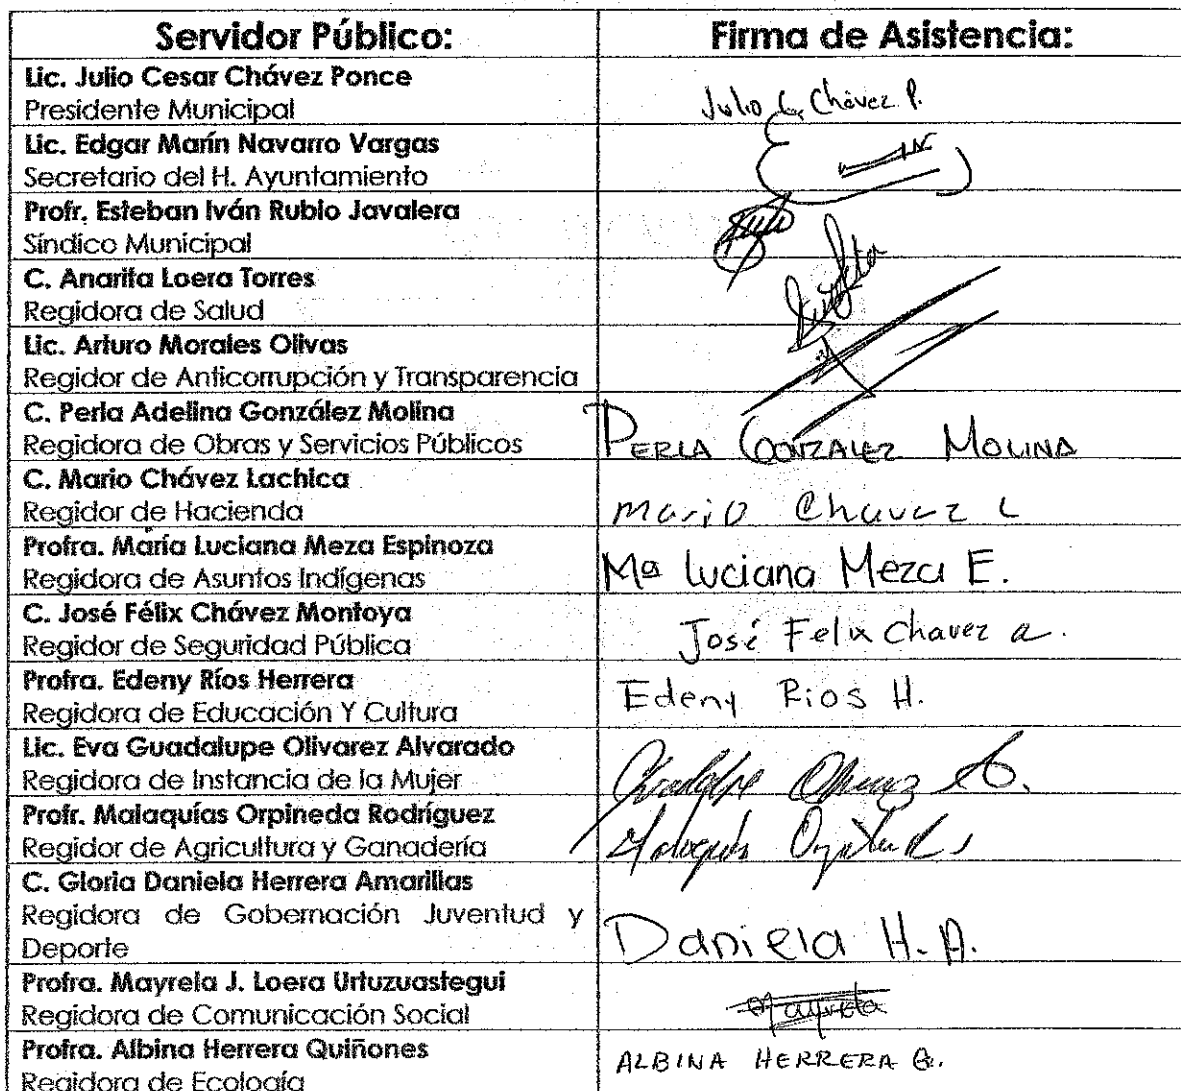 Servidor Público: Firma de Asistencia:
Lic. Julio Cesar Chávez Ponce
Presidente Municipal
Julio C. Chávez P.
Lic. Edgar Marín Navarro Vargas
Secretario del H. Ayuntamiento
Profr. Esteban Iván Rubio Javalera
Síndico Municipal
C. Anarita Loera Torres
Regidora de Salud
Lic. Arturo Morales Olivas
Regidor de Anticorrupción y Transparencia
C. Perla Adelina González Molina
Regidora de Obras y Servicios Públicos
PERLA GONZALEZ MOLINA
C. Mario Chávez Lachica
Regidor de Hacienda
Mario Chavez L
Profra. María Luciana Meza Espinoza
Regidora de Asuntos Indígenas
Mª Luciana Meza E.
C. José Félix Chávez Montoya
Regidor de Seguridad Pública
José Felix Chavez a.
Profra. Edeny Ríos Herrera
Regidora de Educación Y Cultura
Edeny Rios H.
Lic. Eva Guadalupe Olivarez Alvarado
Regidora de Instancia de la Mujer
Profr. Malaquías Orpineda Rodríguez
Regidor de Agricultura y Ganadería
C. Gloria Daniela Herrera Amarillas
Regidora de Gobernación Juventud y
Deporte
Daniela H. A.
Profra. Mayrela J. Loera Urtuzuastegui
Regidora de Comunicación Social
Profra. Albina Herrera Quiñones
Regidora de Ecología
ALBINA HERRERA Q.